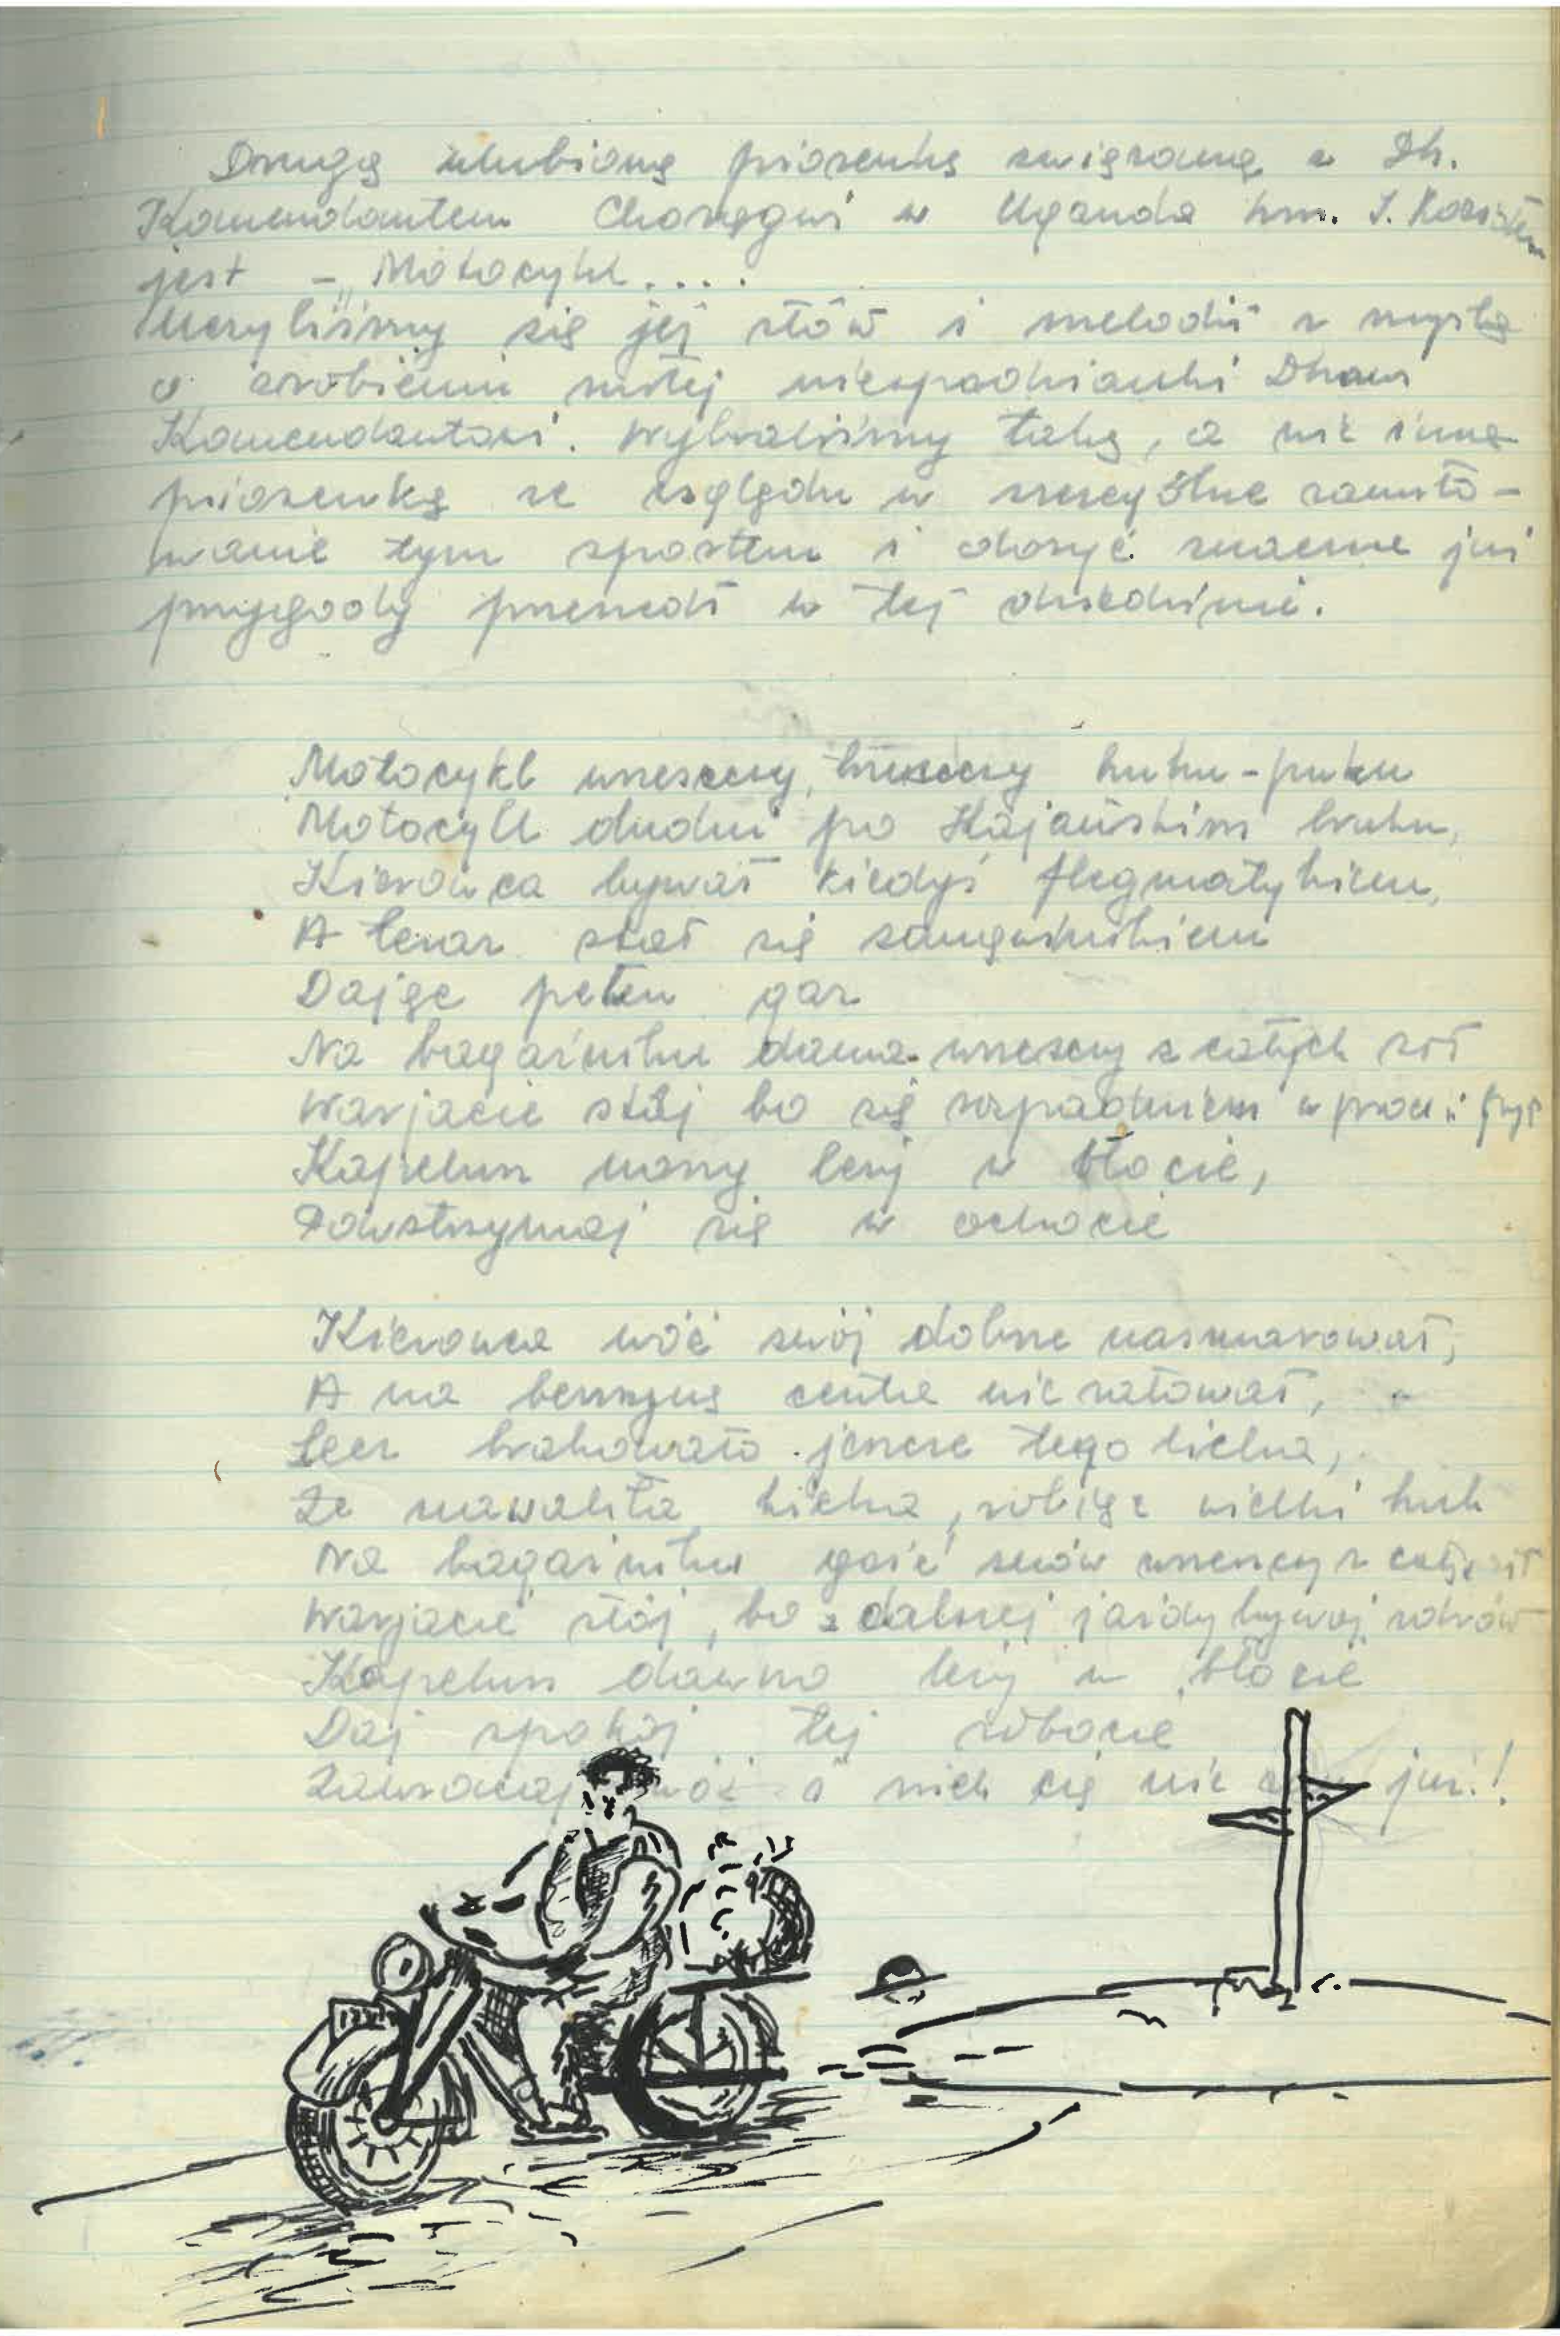 Drugą ulubioną piosenką związaną z Dh.
Komendantem Chorągwi w Uganda hm. J.
jest – „Motocykl....
Uczyliśmy się jej słów i melodii z myślą
o zrobieniu miłej niespodzianki Dhowi
Komendantowi. Wybraliśmy taką, a nie inną
piosenkę ze względu w szczególne zamiło-
wanie tym sportem i dosyć znaczne już
przygody przeszedł w tej dziedzinie.
Motocykl wrzeszczy, trzeszczy huku-puku
Motocykl dudni po Kajańskim bruku,
Kierowca bywał kiedyś flegmatykiem,
A teraz stał się sangwinikiem
Dając pełen gaz
Na bagażniku dama wrzeszczy z całych sił
Warjacie stój bo się rozpadniem w proch i pył
Kapelusz nasz leży w błocie,
Powstrzymaj się w ochocie
Kierowca wóz swój dobrze nasmarował,
A na benzynę centa nie żałował,
Lecz brakowało jeszcze tego licha,
Że nawaliła kicha, robiąc wielki huk
Na bagażniku gość znów wrzeszczy z całych sił
Warjacie stój, bo z dalszej jazdy bywaj zdrów
Kapelusz dawno leży w błocie
Daj spokój tej robocie
Zawracaj wóz i niech cię nie już!